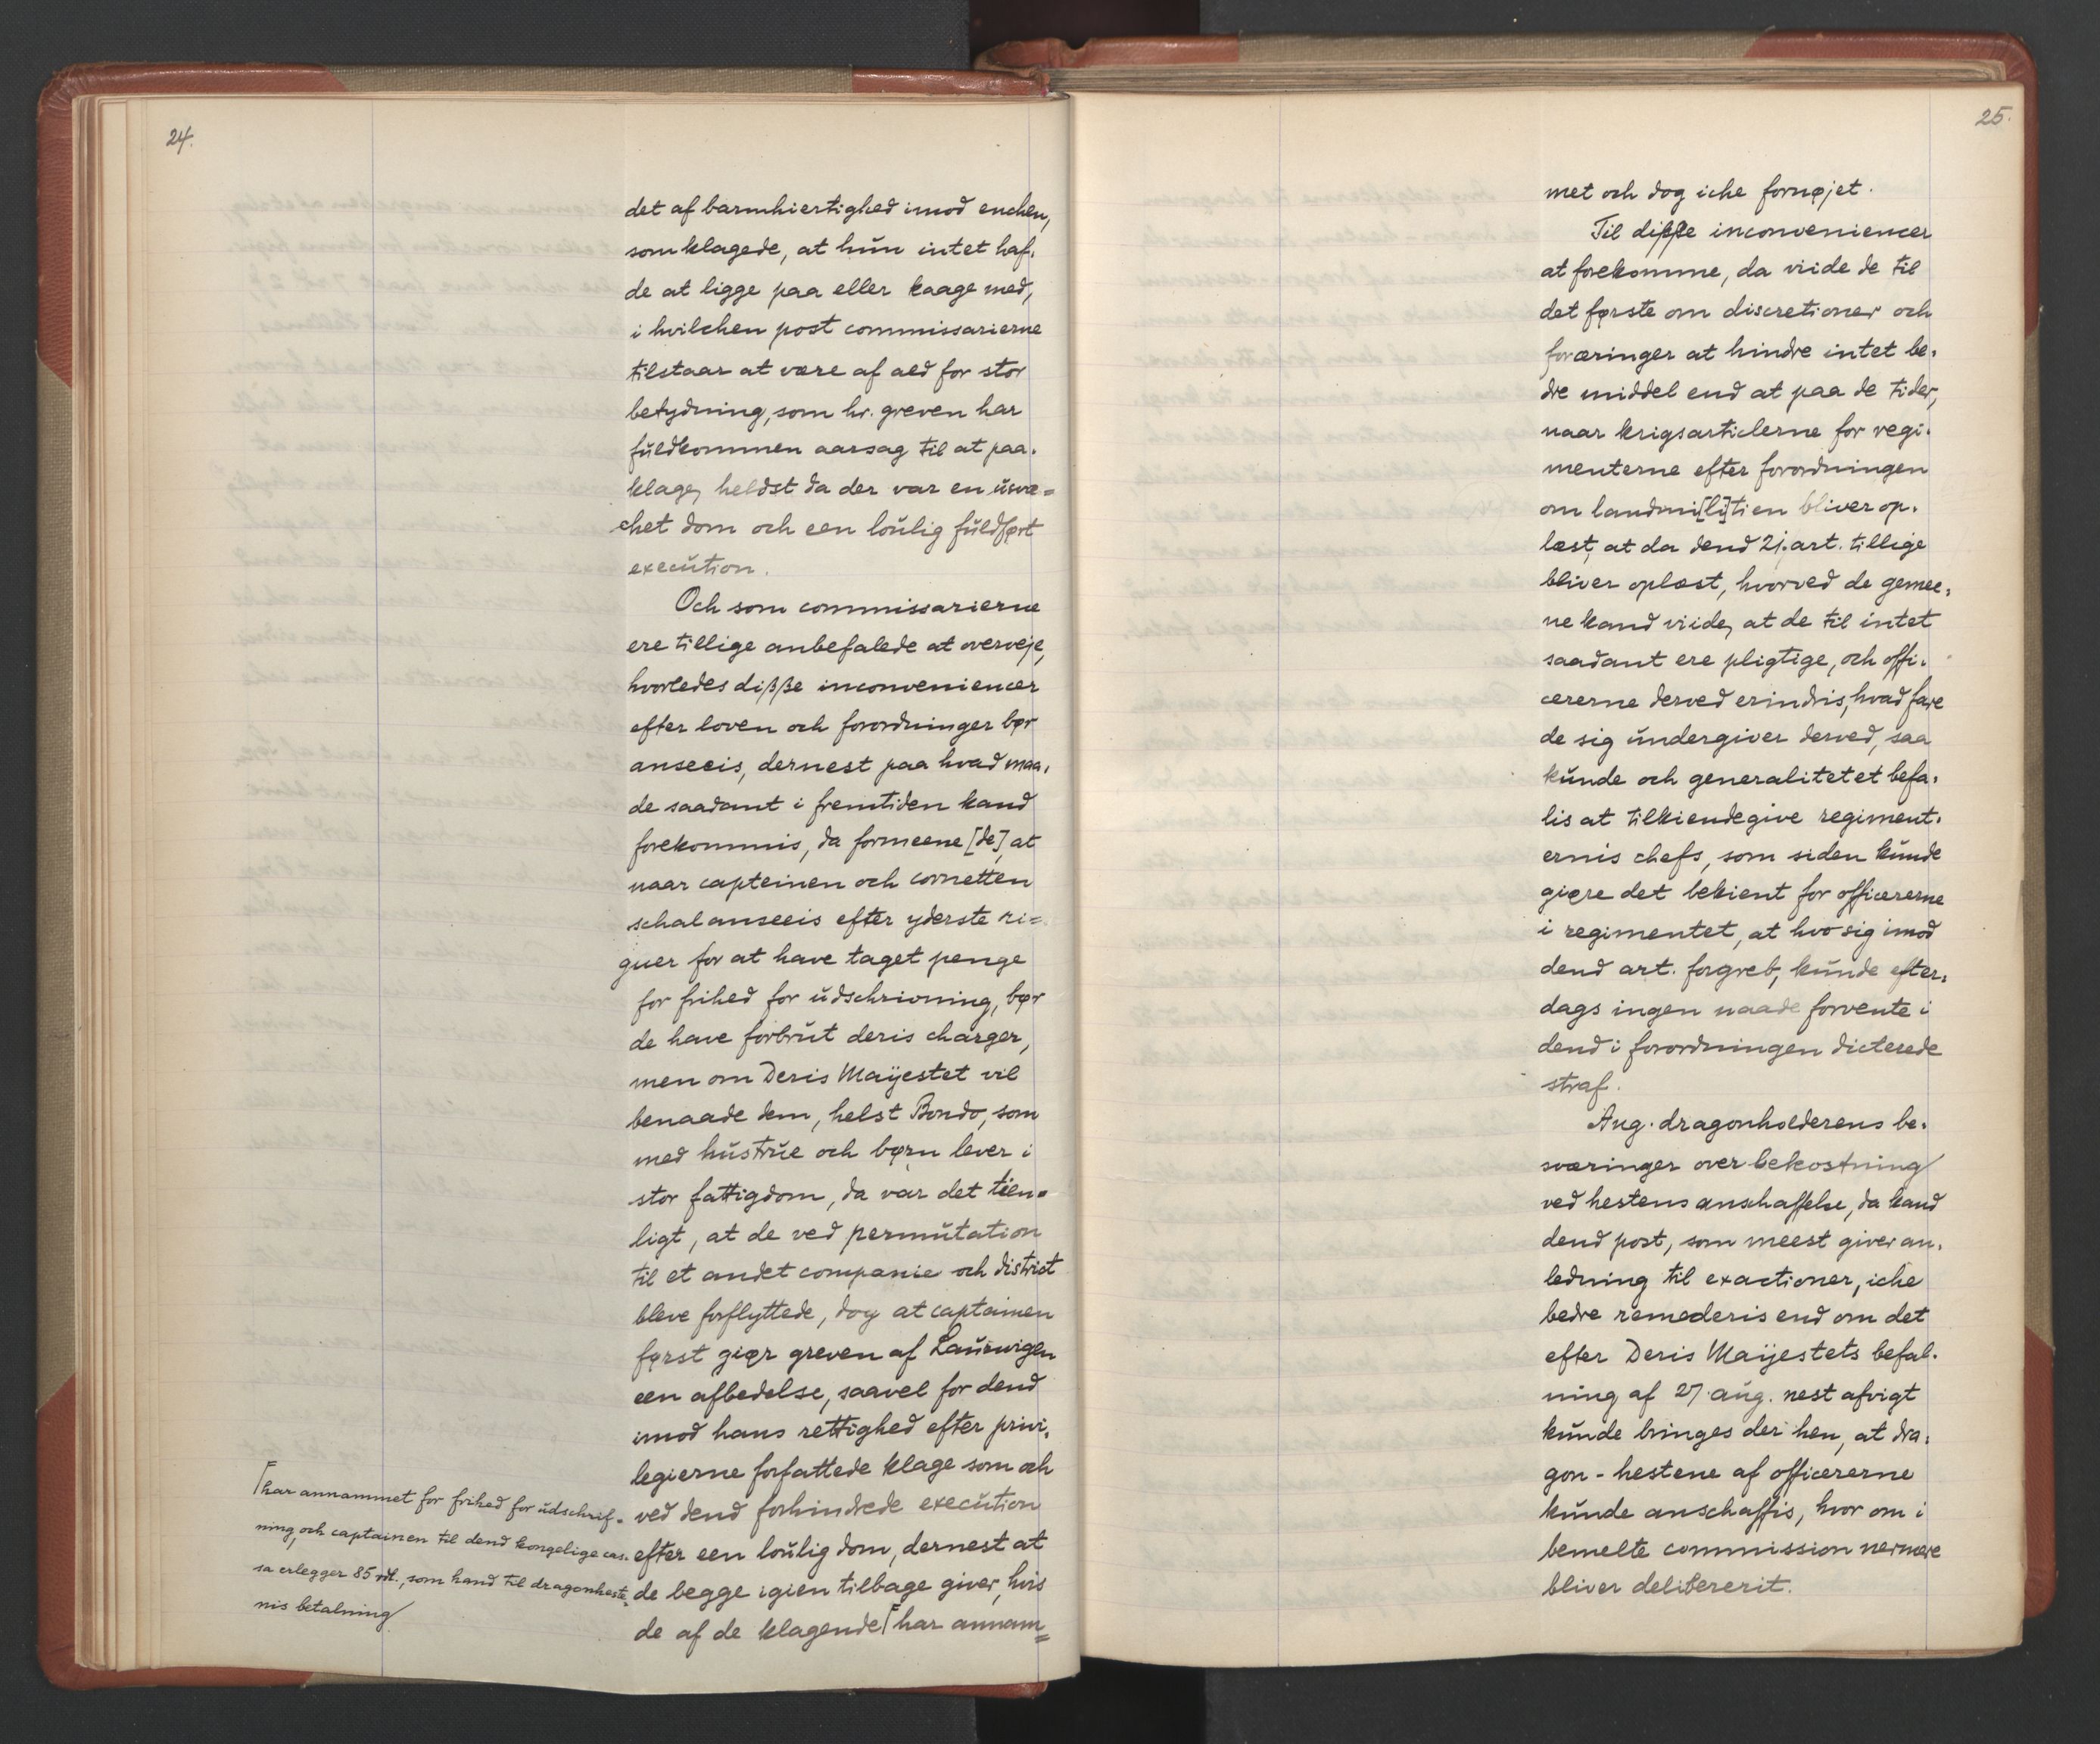 24.
det af barmhiertighed imod enchen,
som klagede, at hun intet haf-
de at ligge paa eller kaage med,
i hvilchen post commissarierne
tilstaar at være af ald for stor
betydning, som hr. greven har
fuldkommen aarsag til at paa-
klage, heldst da der var en usvæ-
chet dom och een loulig fuldført
execution.
Och som commissarierne
ere tillige anbefalede at overveje,
hvorledes disse inconveniencer
efter loven och forordninger bør
anseeis, dernest paa hvad maa-
de saadant i fremtiden kand
forekommis, da formeene [de], at
naar capteinen och cornetten
schal anseeis efter yderste ri-
guer for at have taget penge
for frihed for udschrivning, bør
de have forbrut deris charger,
men om Deris Maijestet vil
benaade dem, helst Bondo, som
med hustrue och børn lever i
stor fattigdom, da var det tien-
ligt, at de ved permutation
til et andet companie och district
bleve forflyttede, dog at captainen
først giør greven af Laurwigen
een afbedelse, saavel for dend
imod hans rettighed efter privi-
legierne forfattede klage som och
ved dend forhindrede execution
efter een loulig dom, dernest at
de begge igien tilbage giver, hvis
de af de klagende ⌈har annam-
⌈har annammet for frihed for udschrif-
ning, och captainen til dend kongelige cas-
sa erlegger 85 rdl., som hand til dragonheste-
nis betalning
25.
met och dog iche fornøjet.
Til disse inconveniencer
at forekomme, da viide de til
det første om discretioner och
foræringer at hindre intet be-
dre middel end at paa de tider,
naar krigsarticlerne for regi-
menterne efter forordningen
om landmi[li]tien bliver op-
læst, at da dend 21. art. tillige
bliver oplæst, hvorved de gemee-
ne kand viide, at de til intet
saadant ere pligtige, och offi-
cererne derved erindris, hvad fare
de sig undergiver derved, saa
kunde och generalitetet befa-
lis at tilkiendegive regiment-
ernis chefs, som siden kunde
giøre det bekient for officererne
i regimentet, at hvo sig imod
dend art. forgreb, kunde efter-
dags ingen naade forvente i
dend i forordningen dicterede
straf.
Ang. dragonholderens be-
sværinger over bekostning
ved hestens anschaffelse, da kand
dend post, som meest giver an-
ledning til exactioner, iche
bedre remederis end om det
efter Deris Maijestets befal-
ning af 27 aug. nest afvigt
kunde bringes der hen, at dra-
gon-hestene af officererne
kunde anschaffis, hvor om i
bemelte commission nermere
bliver delibererit.